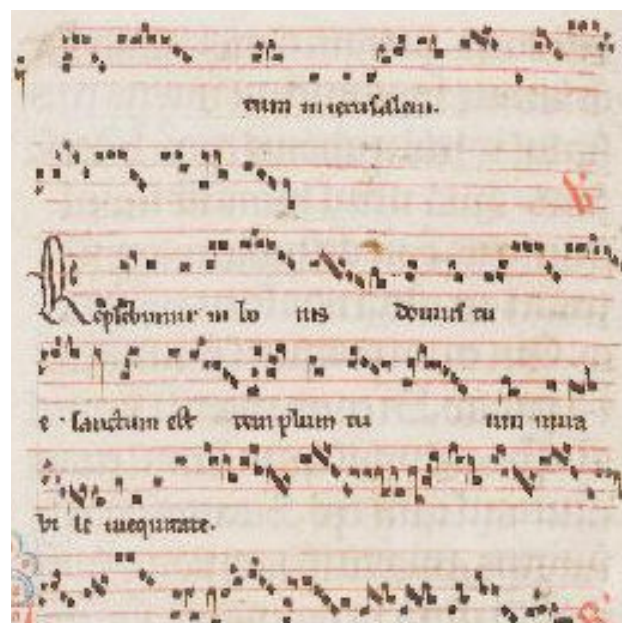 tum in ierusalem.
℣.
Replebimur in bo nis domus tu
e · sanctum est templum tu um mira
bi le in equitate.